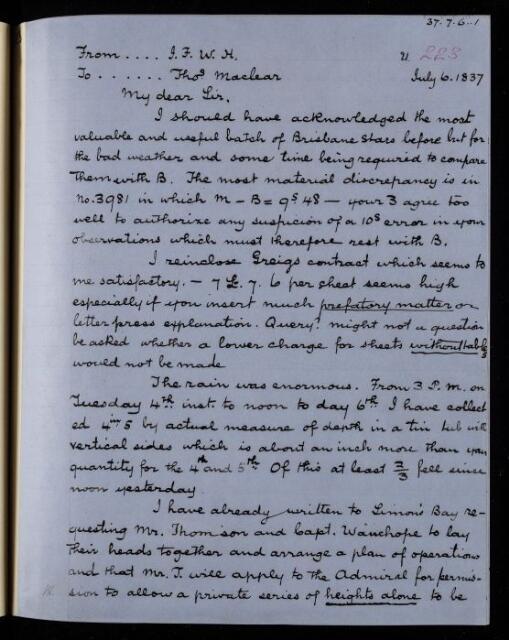 37.7.6..1
From .... J. F. W. H. 223
To ...... Thos Maclear July 6. 1837
My dear Sir,
I should have acknowledged the most
valuable and useful batch of Brisbane stars before but for
the bad weather and some time being required to compare
them with B. The most material discrepancy is in
No. 3981 in which M – B = 9s 48 — your 3 agree too
well to authorize any suspicion of a 10s error in your
observations which must therefore rest with B.
I reinclose Greigs contract which seems to
me satisfactory. — 7 £. 7. 6 per sheet seems high
especially if you insert much prefatory matter or
letter press explanation. Query? might not a question
be asked whether a lower charge for sheets without tables
would not be made
The rain was enormous. From 3 P.M. on
Tuesday 4th inst to noon to day 6th I have collect
ed 4in 5 by actual measure of depth in a tin tub with
vertical sides which is about an inch more than your
quantity for the 4th and 5th. Of this at least 2/3 fell since
noon yesterday.
I have already written to Simon's Bay re-
questing Mr. Thomson and Capt. Wauchope to lay
their heads together and arrange a plan of operations
and that Mr. T. will apply to the Admiral for permis-
sion to allow a private series of heights alone to be